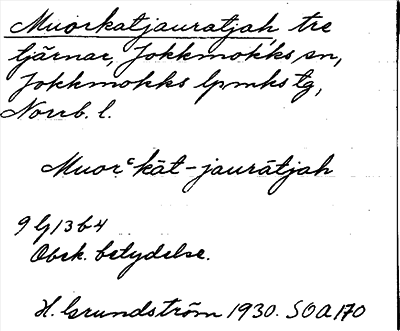 Muorkatjauratjah, tre
tjärnar, Jokkmokks sn,
Jokkmokks lpmks tg,
Norrb. l.
Muorᶜkāt-jaurātjah
9 G/3 b 4
Obek. betydelse.
H. Grundström 1930. SOA 170